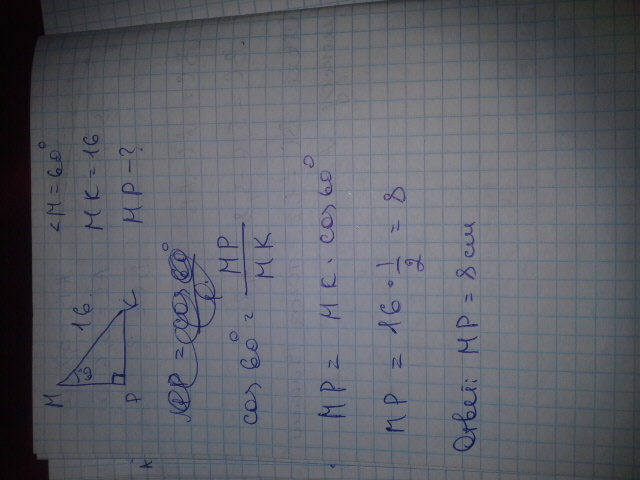 M
16
60
P
K
<M = 60°
MK = 16
MP - ?
cos 60° = MP / MK
MP = MK · cos 60°
MP = 16 · 1/2 = 8
Ответ: MP = 8 см